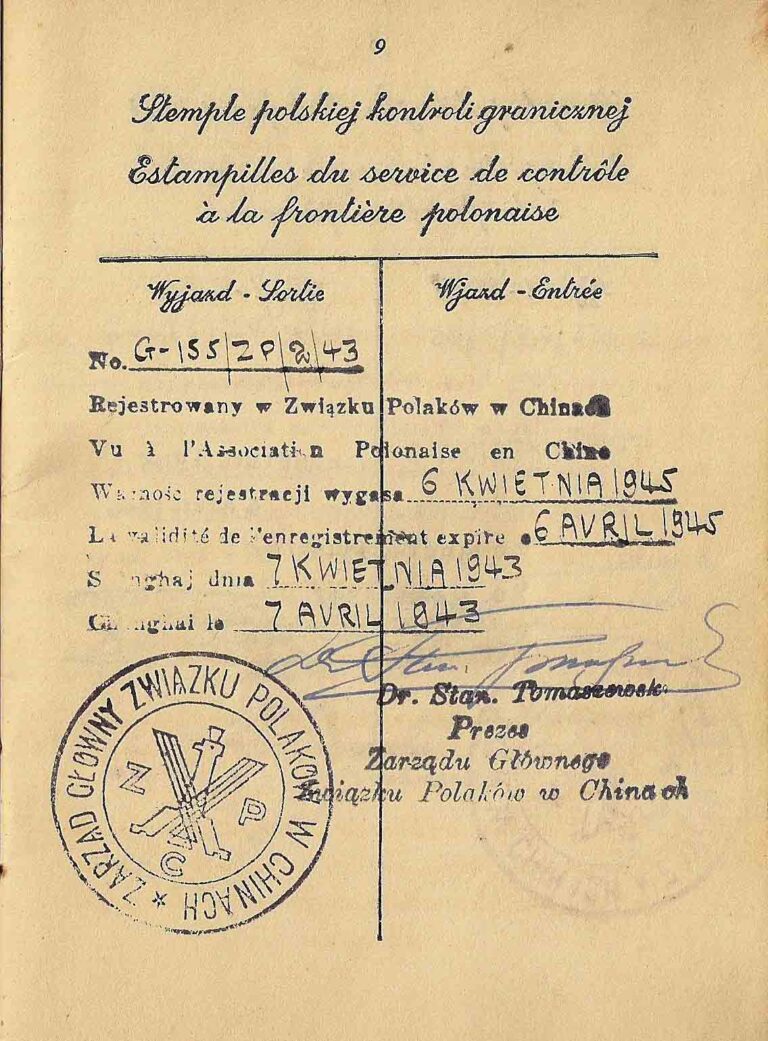 9
Stemple polskiej kontroli granicznej
Estampilles du service de contrôle
à la frontière polonaise
Wyjazd - Sortie
Wjazd - Entrée
No. G-155/ZP/2/43
Rejestrowany w Związku Polaków w Chinach
Vu à l'Association Polonaise en Chine
Ważność rejestracji wygasa 6 KWIETNIA 1945
La validité de l'enregistrement expire 6 AVRIL 1945
Szanghaj dnia 7 KWIETNIA 1943
Changhai le 7 AVRIL 1943
Dr. Stan. Tomaszewski
Prezes
Zarządu Głównego
Związku Polaków w Chinach
ZARZĄD GŁOWNY ZWIAZKU POLAKOW W CHINACH *
Z P C